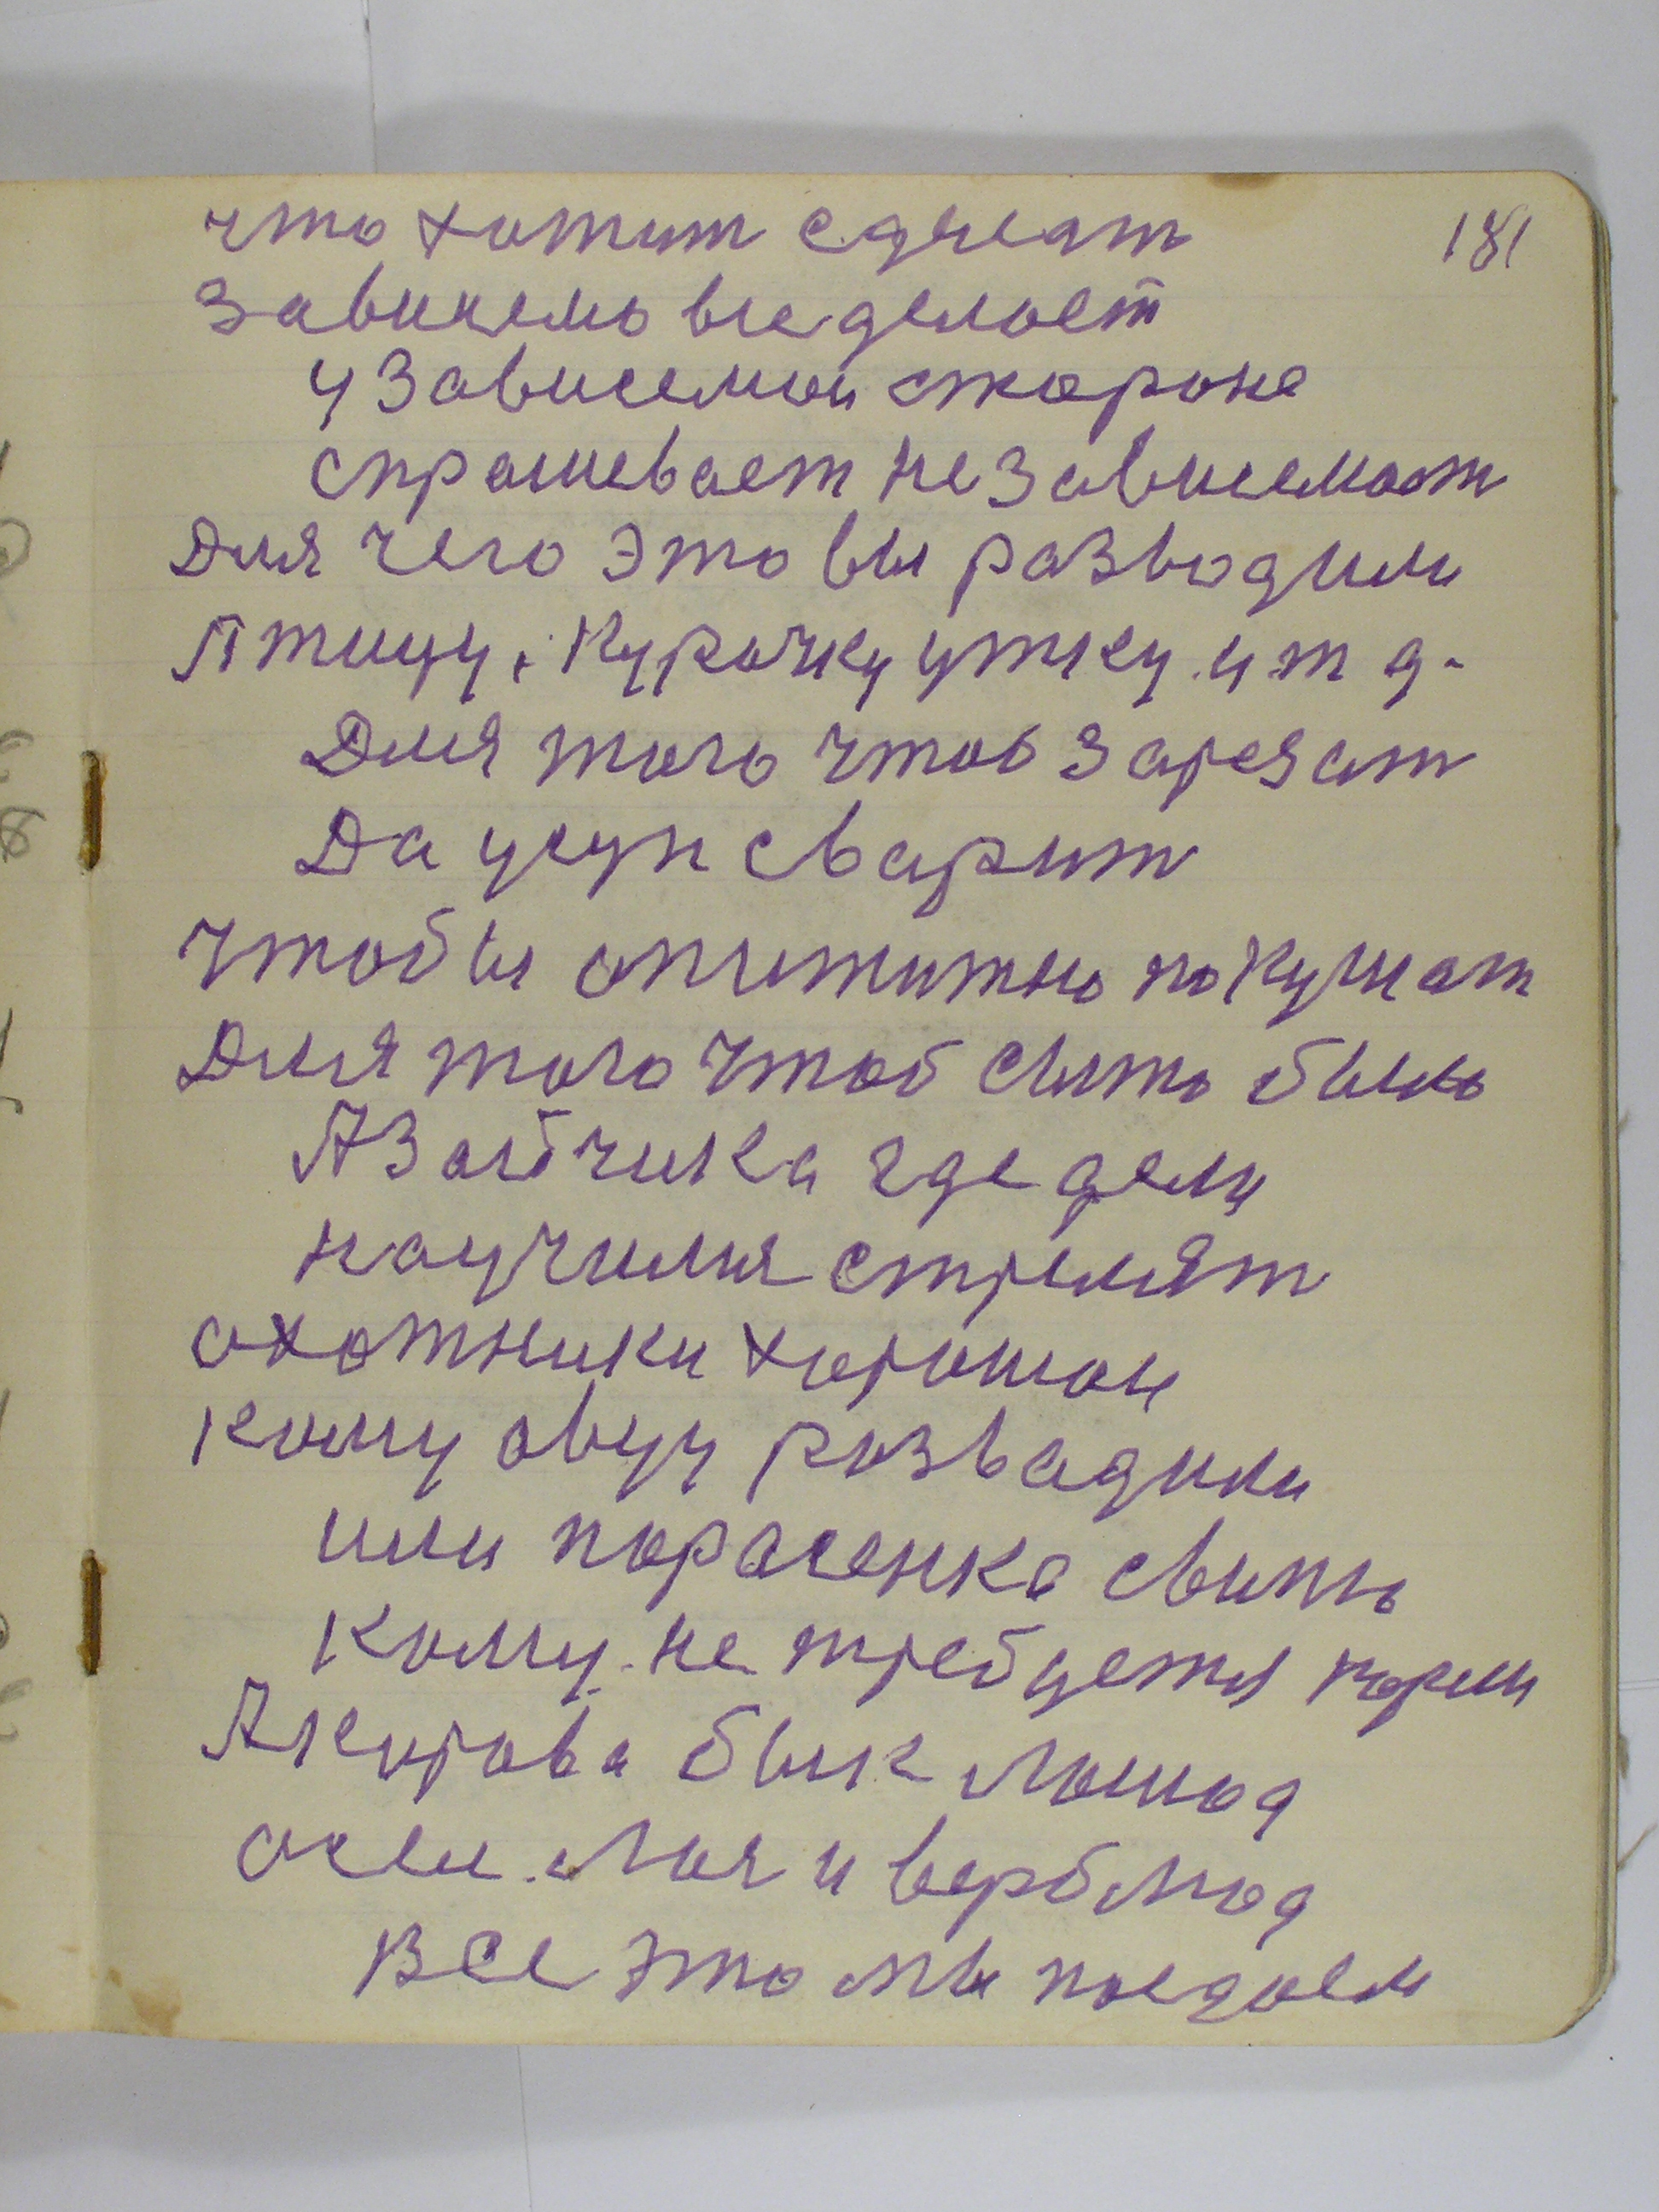 181
что хотит сделат
Зависемо все делает
у Зависемои стороне
спрашевает не Зависемаст
Для чего это вы разводили
Птицу, Курочку утку и т д.
Для того чтоб зарезат
Да и суп сварит
Чтобы апититно покушат
Для того чтоб сыто было
А Зайчика где дели
научилис стрелят
охотники хорошои
Кому овцу розвадили
или поросенка свинь
Кому не требуется корми
А корова бык лошад
осел лоя и верблюд
Все это мы поедаем